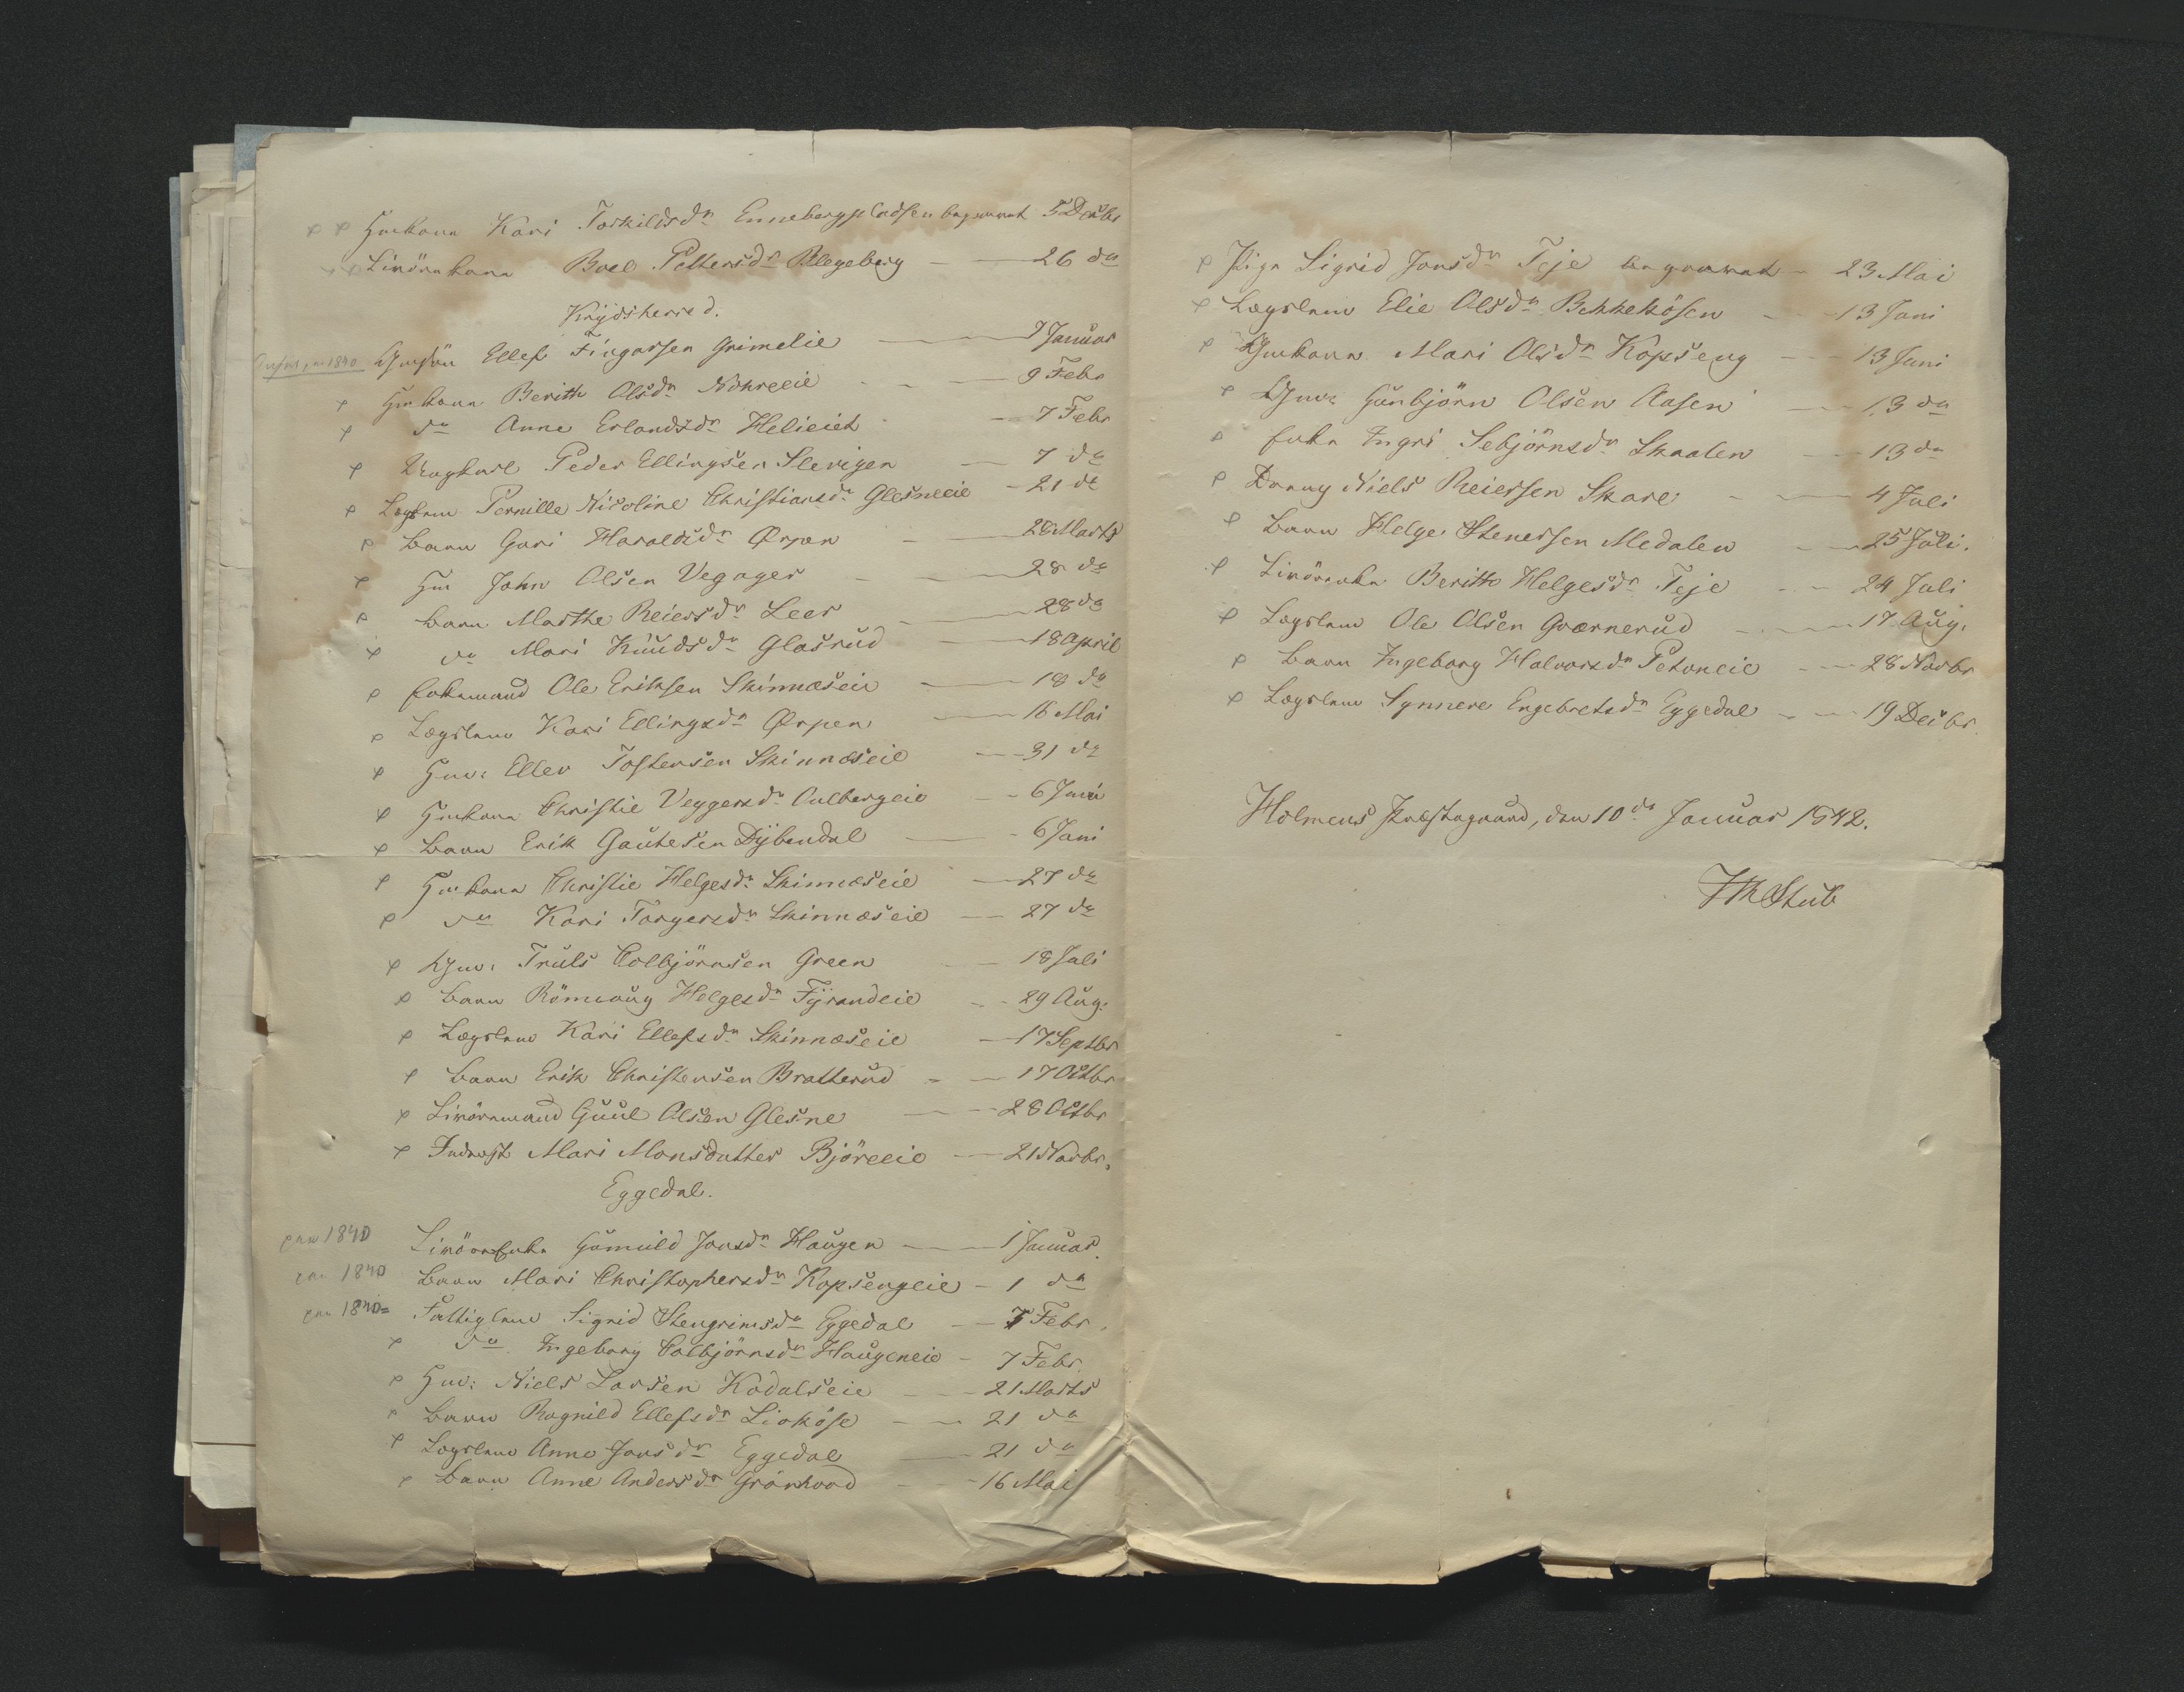 Huskone Kari Torkildsdr Enneberspladsen begravet 5 Decbr
Livörekone Boel Pettersdr Blegeberg 26 do
Krydsherred.
Gmsön Ellef Fingarsen Grimelie 7 Januar
Huskone Berith Olsdr Nohreeie 9 Febr
do Anne Erlandsdr Helieiet 7 Febr
Ungkarl Peder Ellingsen Slevigen 7 do
Lægslem Pernille Nicoline Christiansdr Glesneeie 21 do
Barn Guri Haraldsdr Ørpen 28 Marts
Hm John Olsen Vegager 28 do
Barn Marthe Reiersdr Leer 28 do
do Mari Knudsdr Glasrud 18 April
Enkemand Ole Eriksen Skinnæseie 18 do
Lægslem Kari Ellingsdr Ørpen 16 Mai
Hmd: Ellev Tostensen Skinnæseie 31 do
Huskone Christie Veggersdr Oulbergeie 6 Juni
Barn Erik Gautesen Dybendal 6 Juni
Huskone Christie Helgesdr Skinnæseie 27 do
do Kari Torgersdr Skinnæseie 27 do
Gmd: Truls Colbjörnsen Green 18 Juli
Barn Römoug Helgesdr Fyrandeie 29 Aug:
Lægslem Kari Ellefsdr Skinnæseie 17 Septbr
Barn Erik Christensen Bratterud 17 Octbr
Livöremand Guul Olsen Glesne 28 Octbr
Inderst Mari Monsdatter Björeeie 21 Novbr.
Eggedal.
1840 Livöreenke Gumild Jonsdr Haugen 1 Januar.
1840 Barn Mari Christophersdr Kopsengeie 1 do
1840 Fattiglem Sigrid Stengrimsdr Eggedal 7 Febr.
do Ingeborg Colbjörnsdr Haugeneie 7 Febr.
Hmd: Niels Larsen Kodalseie 21 Marts
Barn Ragnild Ellefsdr Lioköse 21 do
Lægslem Anne Jonsdr Eggedal 21 do
Barn Anne Andersdr Grönhovd 16 Mai
Pige Sigrid Jonsdr Teje begravet 23 Mai
Lægslem Elie Olsdr Bekkekösen 13 Juni
Gmkone Mari Olsdr Kopseng 13 Juni
Gmd: Gunbjörn Olsen Aasen 13 do
Enke Ingri Sebjörnsdr Skaalen 13 do
Dreng Niels Reiersen Skare 4 Juli
Barn Helge Stenersen Medalen 25 Juli.
Livöreenke Beritte Helgesdr Teje 24 Juli
Lægslem Ole Olsen Gværnerud 17 Aug.
Barn Ingeborg Halvorsdr Petoneie 28 Novbr
Lægslem Synnere Engebretsdr Eggedal 19 Decbr.
Holmens Præstegaard, den 10de Januar 1842.
Stub